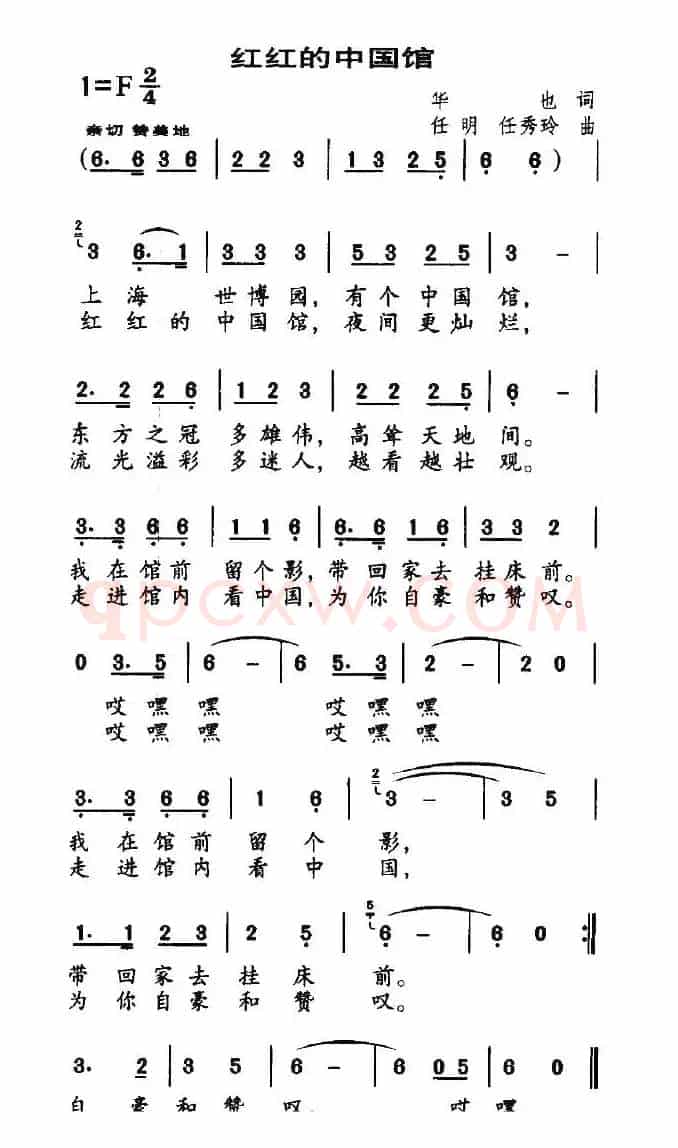 红红的中国馆
1=F 2/4
华也词
亲切 赞美地
任明 任秀玲 曲
(6. 6 3 6 | 2 2 3 | 1 3 2 5 | 6 6 )
2 3 6. 1 | 3 3 3 | 5 3 2 5 | 3 – |
上海 世博园，有个中国馆，
红红的中国馆，夜间更灿烂，
2. 2 2 6 | 1 2 3 | 2 2 2 5 | 6 – |
东方之冠多雄伟，高耸天地间。
流光溢彩多迷人，越看越壮观。
3. 3 6 6 | 1 1 6 | 6. 6 1 6 | 3 3 2 |
我在馆前留个影，带回家去挂床前。
走进馆内看中国，为你自豪和赞叹。
qpcxw.com
0 3. 5 | 6 – | 6 5. 3 | 2 – | 2 0 |
哎嘿嘿 哎嘿嘿
哎嘿嘿 哎嘿嘿
3. 3 6 6 | 1 6 | 2 3 – | 3 5 |
我在馆前留个影，
走进馆内看中国，
1. 1 2 3 | 2 5 | 5 6 – | 6 0 :||
带回家去挂床前。
为你自豪和赞叹。
3. 2 | 3 5 | 6 – | 6 – | 6 0 5 | 6 0 ||
自豪和赞叹. 哎嘿